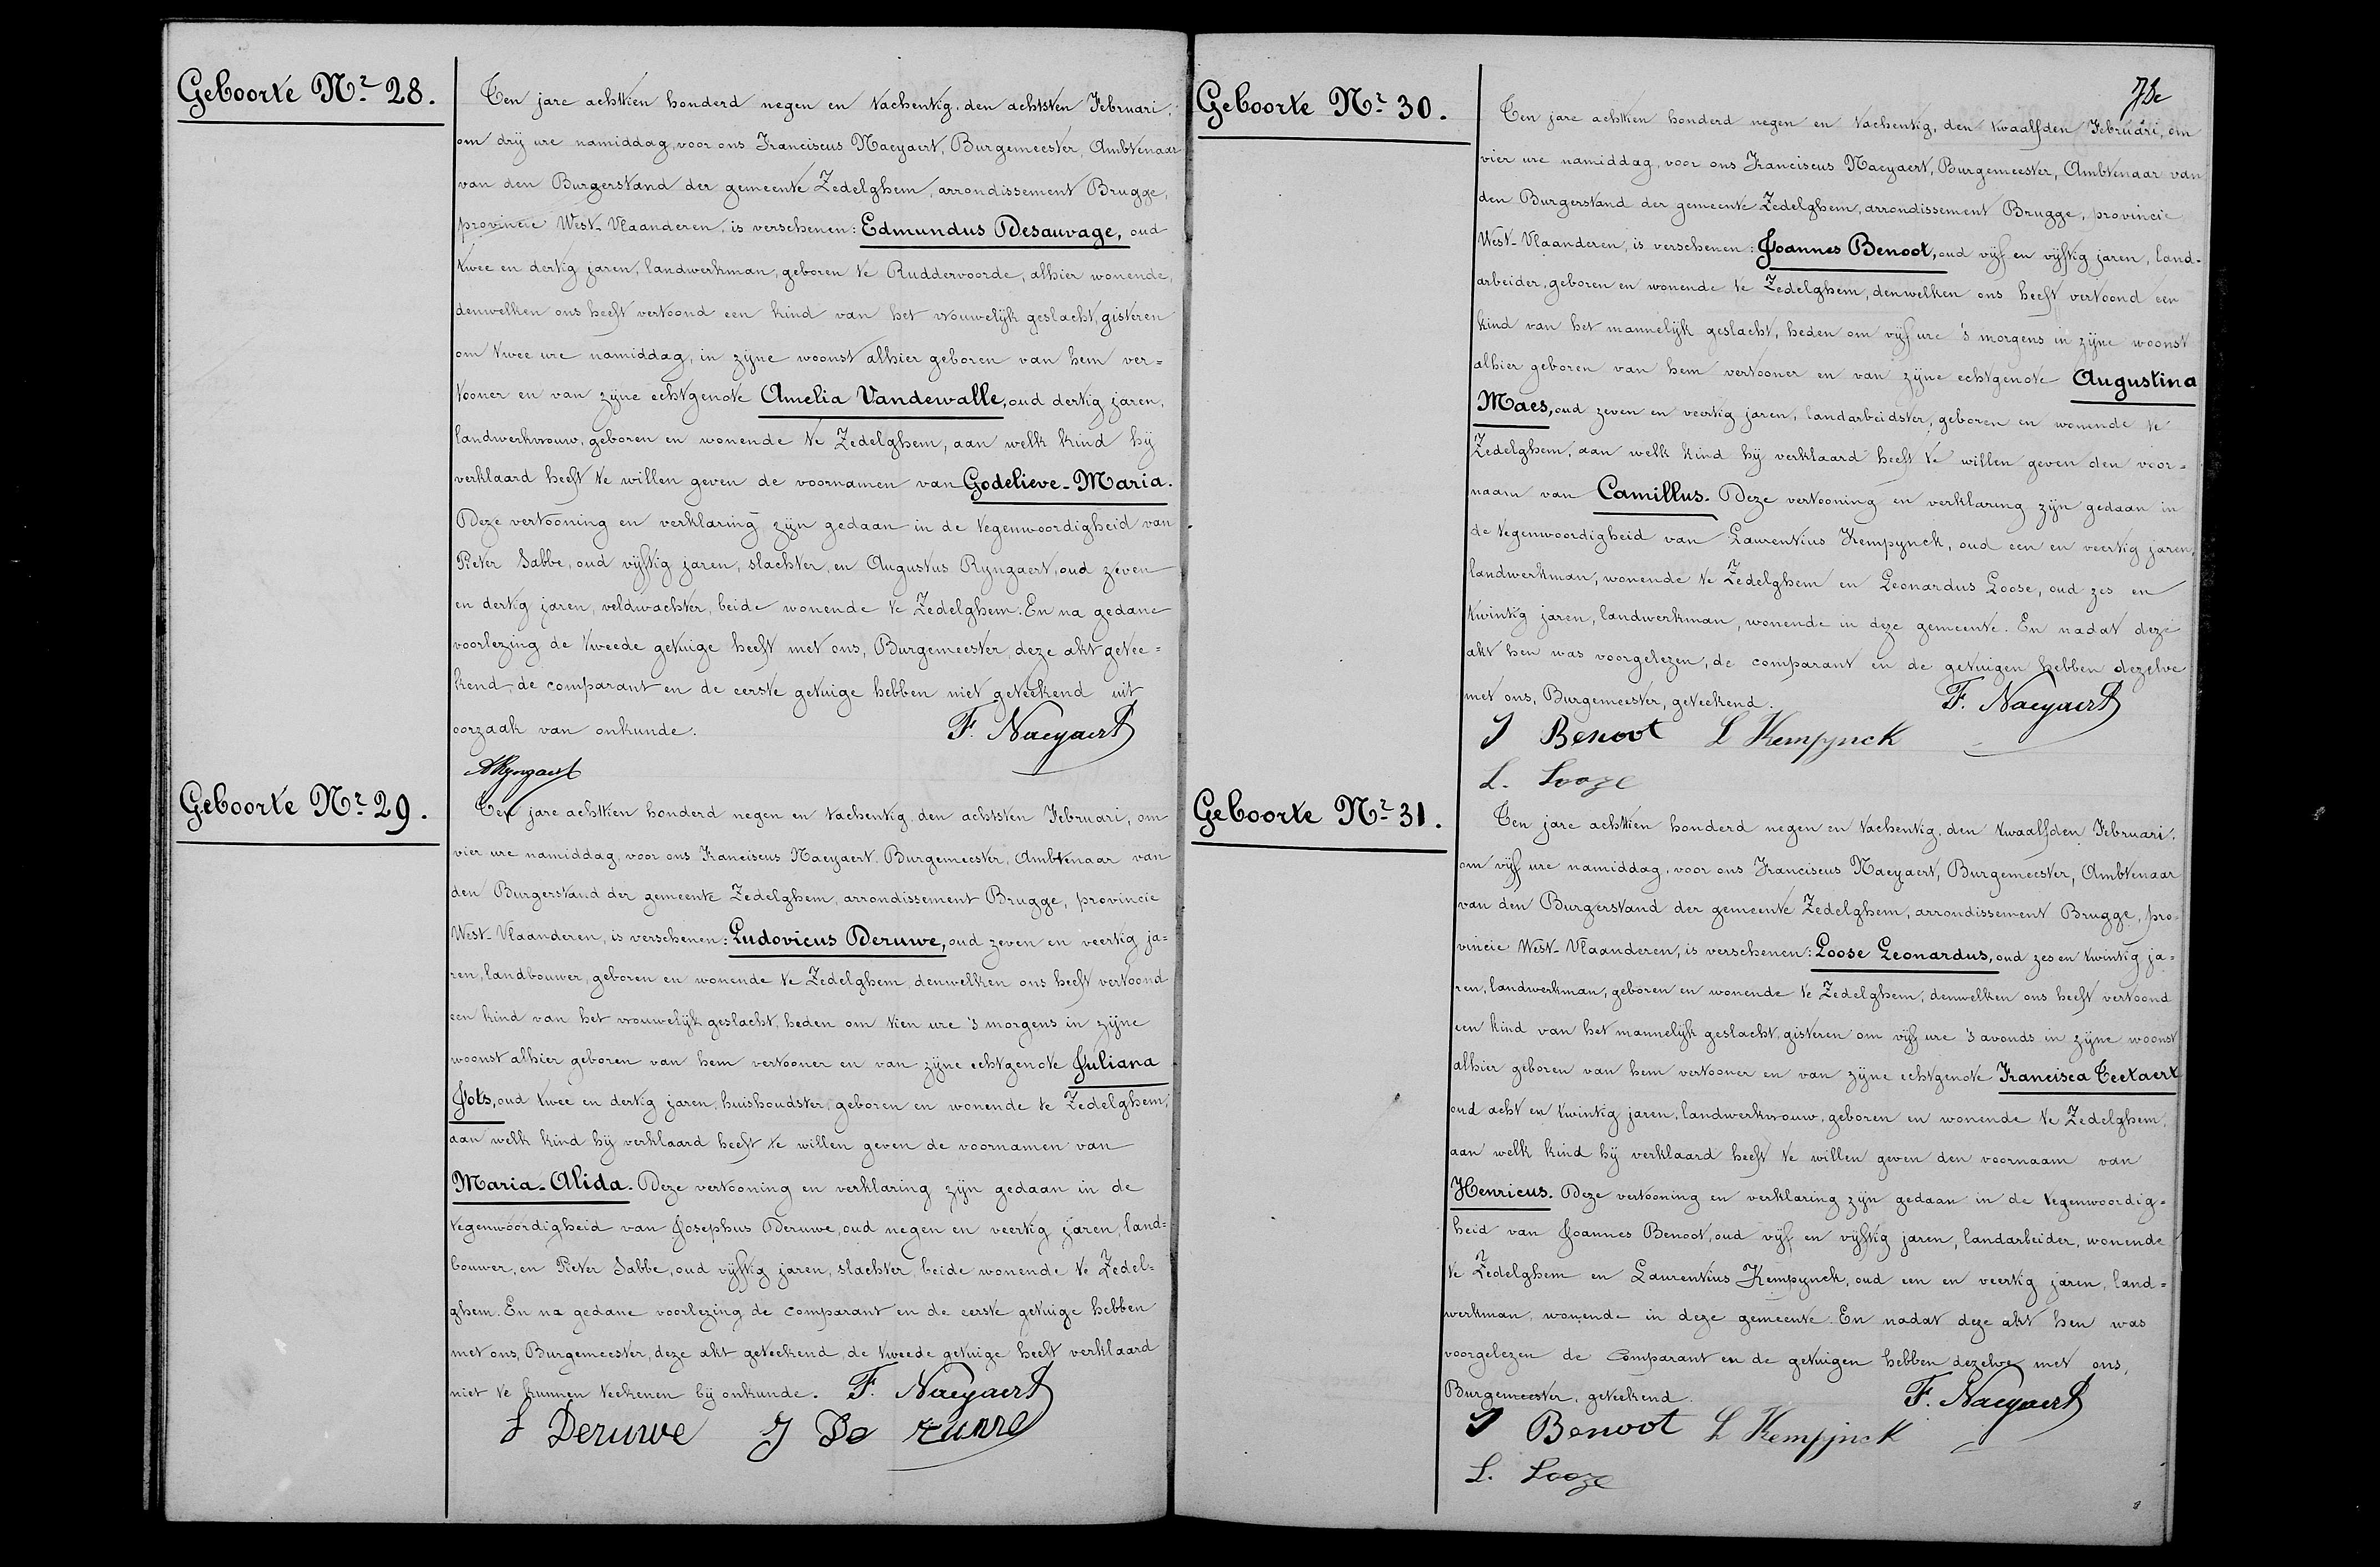 Geboorte Nr 28.
Ten jare achttien honderd negen en tachentig, den achtsten Februari,
om drij ure namiddag, voor ons Franciscus Naeyaert, Burgemeester, Ambtenaar
van den Burgerstand der gemeente Zedelghem, arrondissement Brugge,
provincie West-Vlaanderen, is verschenen: Edmundus Desauvage, oud
twee en dertig jaren, landwerkman, geboren te Ruddervoorde, alhier wonende,
denwelken ons heeft vertoond een kind van het vrouwelijk geslacht, gisteren
om twee ure namiddag, in zijne woonst alhier geboren van hem ver=
tooner en van zijne echtgenote Amelia Vandewalle, oud dertig jaren,
landwerkvrouw, geboren en wonende te Zedelghem, aan welk kind hij
verklaard heeft te willen geven de voornamen van Godelieve-Maria.
Deze vertooning en verklaring zijn gedaan in de tegenwoordigheid van
Pieter Sabbe, oud vijftig jaren, slachter, en Augustus Ryngaert, oud zeven
en dertig jaren, veldwachter, beide wonende te Zedelghem. En na gedane
voorlezing de tweede getuige heeft met ons, Burgemeester, deze akt getee=
kend, de comparant en de eerste getuige hebben niet geteekend uit
oorzaak van onkunde. F. Naeyaert
ARyngaert
Geboorte Nr 29.
Ten jare achttien honderd negen en tachentig, den achtsten Februari, om
vier ure namiddag, voor ons Franciscus Naeyaert, Burgemeester, Ambtenaar van
den Burgerstand der gemeente Zedelghem, arrondissement Brugge, provincie
West-Vlaanderen, is verschenen: Ludovicus Deruwe, oud zeven en veertig ja=
ren, landbouwer, geboren en wonende te Zedelghem, denwelken ons heeft vertoond
een kind van het vrouwelijk geslacht, heden om tien ure 's morgens in zijne
woonst alhier geboren van hem vertooner en van zijne echtgenote Juliana
Jots, oud twee en dertig jaren, huishoudster, geboren en wonende te Zedelghem,
aan welk kind hij verklaard heeft te willen geven de voornamen van
Maria-Alida. Deze vertooning en verklaring zijn gedaan in de
tegenwoordigheid van Josephus Deruwe, oud negen en veertig jaren, land=
bouwer, en Pieter Sabbe, oud vijftig jaren, slachter, beide wonende te Zedel=
ghem. En na gedane voorlezing de comparant en de eerste getuige hebben
met ons, Burgemeester, deze akt geteekend, de tweede getuige heeft verklaard
niet te kunnen teekenen bij onkunde. F. Naeyaert
L Deruwe J De ruwe
Geboorte Nr 30.
Ten jare achttien honderd negen en tachentig, den twaalfden Februari, om
vier ure namiddag, voor ons Franciscus Naeyaert, Burgemeester, Ambtenaar van
den Burgerstand der gemeente Zedelghem, arrondissement Brugge, provincie
West-Vlaanderen, is verschenen: Joannes Benoot, oud vijf en vijftig jaren, land-
arbeider, geboren en wonende te Zedelghem, denwelken ons heeft vertoond een
kind van het mannelijk geslacht, heden om vijf ure 's morgens in zijne woonst
alhier geboren van hem vertooner en van zijne echtgenote Augustina
Maes, oud zeven en veertig jaren, landarbeidster, geboren en wonende te
Zedelghem, aan welk kind hij verklaard heeft te willen geven den voor=
naam van Camillus. Deze vertooning en verklaring zijn gedaan in
de tegenwoordigheid van Laurentius Kempynck, oud een en veertig jaren,
landwerkman, wonende te Zedelghem en Leonardus Loose, oud zes en
twintig jaren, landwerkman, wonende in deze gemeente. En nadat deze
akt hen was voorgelezen, de comparant en de getuigen hebben dezelve
met ons, Burgemeester, geteekend. F. Naeyaert
J Benoot L Kempynck
L. Looze
Geboorte Nr 31.
Ten jare achttien honderd negen en tachentig, den twaalfden Februari,
om vijf ure namiddag, voor ons Franciscus Naeyaert, Burgemeester, Ambtenaar
van den Burgerstand der gemeente Zedelghem, arrondissement Brugge, pro=
vincie West-Vlaanderen, is verschenen: Loose Leonardus, oud zes en twintig ja=
ren, landwerkman, geboren en wonende te Zedelghem, denwelken ons heeft vertoond
een kind van het mannelijk geslacht, gisteren om vijf ure 's avonds in zijne woonst
alhier geboren van hem vertooner en van zijne echtgenote Francisca Teetaert
oud acht en twintig jaren, landwerkvrouw, geboren en wonende te Zedelghem,
aan welk kind hij verklaard heeft te willen geven den voornaam van
Henricus. Deze vertooning en verklaring zijn gedaan in de tegenwoordig=
heid van Joannes Benoot, oud vijf en vijftig jaren, landarbeider, wonende
te Zedelghem en Laurentius Kempynck, oud een en veertig jaren, land=
werkman, wonende in deze gemeente. En nadat deze akt hen was
voorgelezen de comparant en de getuigen hebben dezelve met ons,
Burgemeester, geteekend. F. Naeyaert
J Benoot L Kempijnck
L. Looze